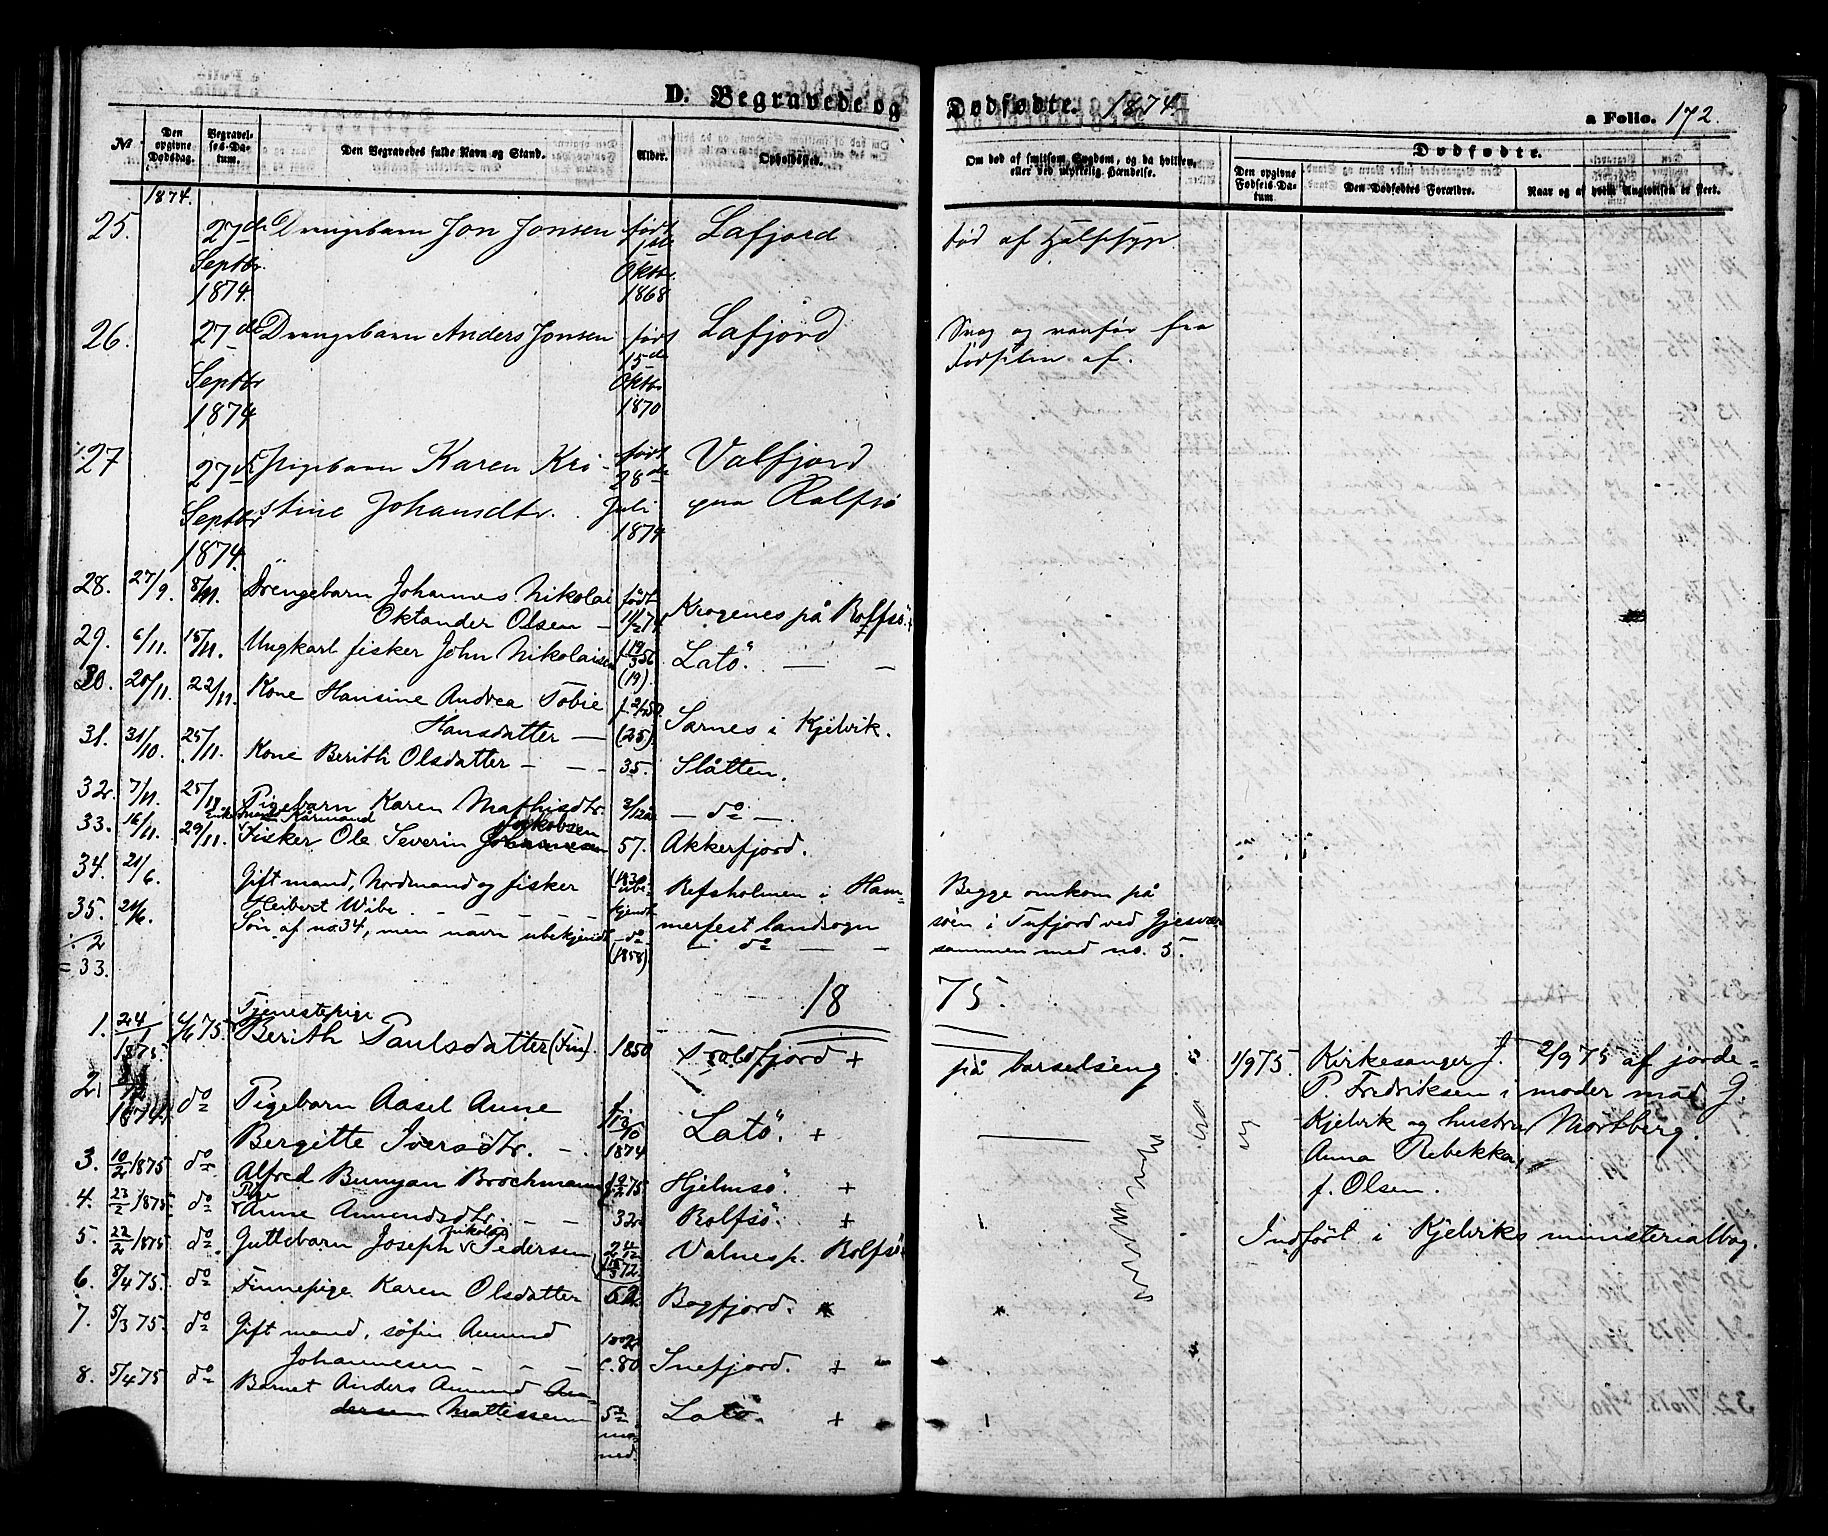 D. Begravede og Dødfødte. 1874
a Folio. 172.
No
Den opgivne Dødsdag.
Begravelses-Datum.
Den Begravedes fulde Navn og Stand.
Alder.
Opholdssted.
Om død af smitsom Sygdom, og da hvilken, eller ved ulykkelig Hændelse.
Dødfødte.
Den opgivne Fødsels-Datum.
Den Dødfødtes Forældre.
Naar og af hvem Angivelsen er skeet.
1874.
25. 27de Septbr. 1874. Drengebarn Jon Jonsen født 1ste Oktbr. 1868 Lafjord Død af Halssyge.
26. 27de Septbr 1874 Drengebarn Anders Jonsen født 15de Oktbr 1870 Lafjord Svag og vanfør fra Fødselen af.
27 27de Septbr 1874. Pigebarn Karen Kri-
stine Johansdtr. født 28de Juli 1874 Valfjord
paa Rolfsø
28. 27/9. 8/11. Drengebarn Johannes Nikolai
Oktander Olsen — født 11/2 74 Krogenes på Rolfsö.
29. 6/11. 15/11. Ungkarl fisker John Nikolaisen f 19/3 56 (19). Latö. — —
30. 20/11. 22/11. Kone Hansine Andrea Tobie
Hansdatter — (25). Sarnes i Kjelvik.
31. 31/10. 25/11. Kone Berith Olsdatter — — — 35. Slåtten.
32. 7/11. 25/11 Pigebarn Karen Mathisdtr. 3/12 år — do —.
33. 16/11. 29/11. Enkemand Kårmand
Fisker Ole Severin Johannesen Jakobsen 57. Akkerfjord.
34. 21/6. Gift mand, Nordmand og fisker
Heibert Wibe. — — — (1830 ubekjendt Refsholmen i Ham-
merfest landsogn
Begge omkom på
söen i Tufjord ved Gjesvær
sammen med no. 5.
35. 21/6. Sön af no. 34, men navn ubekjendt — do — (1858) — do —
÷ 2
= 33.
18 75.
1. 24/1 1875. 6/6 75. Tjenestepige
Berith Paulsdatter (Fin). 1850 Troldfjord + på barselseng
1/9 75. Kirkesanger J.
P. Fredriksen i
Kjelvik og hustru
Anna Rebekka,
f. Olsen.
2/9 75 af jorde-
moder mad. G.
Mörtberg.
2. 1874. do Pigebarn Aasel Anne
Bergitte Iversdtr. — f 13/10 1874 Latö. +
3. 10/2 1875 do Alfred Bunyan Brochmann f 9/2 75 Hjelmsö. +
4. 23/2 1875. do Pige
Anne Amundsdtr. — — 32 Rolfsö. +
Indfört i Kjelviks ministerialbog.
5. 22/2 1875 do Guttebarn Joseph Nikolai Pedersen 2 11/12 72. Valnes p. Rolfsö
6. 8/4 75. do Finnepige Karen Olsdatter 62 Bogfjord. *
7. 5/3 75. do Gift mand, söfin Amund
Johannesen — — — c. 80 Snefjord. +
8. 5/4 75 do Barnet Anders Amund An-
dersen Mattissen 5 måned. Latö. +